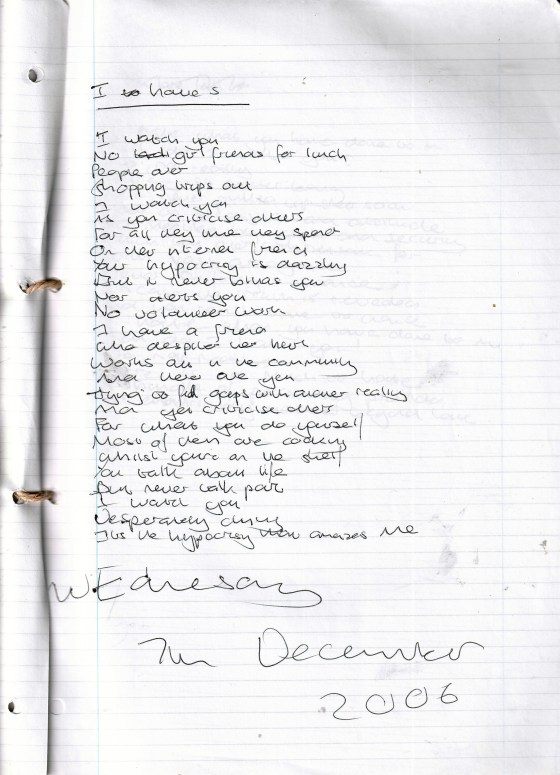 I have s
I watch you
No girl friends for lunch
People over
Shopping trips out
I watch you
As you criticise others
For all they time they spend
On their internet friends
Your hypocrisy is dazzling
But it never blinds you
Nor alerts you
No volunteer work
I have a friend
Who despite her health
Works all in the community
And here are you
trying to fill gaps with another reality
And yet criticise others
For what you do yourself
Most of them are
Whilst you're on the shelf
You talk about life
But never talk part
I watch you
Desperately
Its the hypocrisy amazes me
WEdnesday
7th December
2006